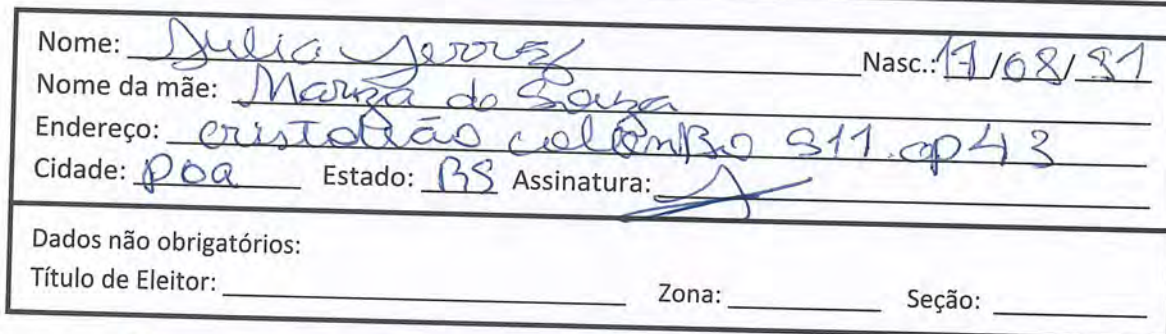 Nome: Julia Jerrez Nasc.: 17/08/91
Nome da mãe: Mariza do Souza
Endereço: cristovão colomBo 911. ap43
Cidade: poa Estado: RS Assinatura:
Dados não obrigatórios:
Título de Eleitor: Zona: Seção: